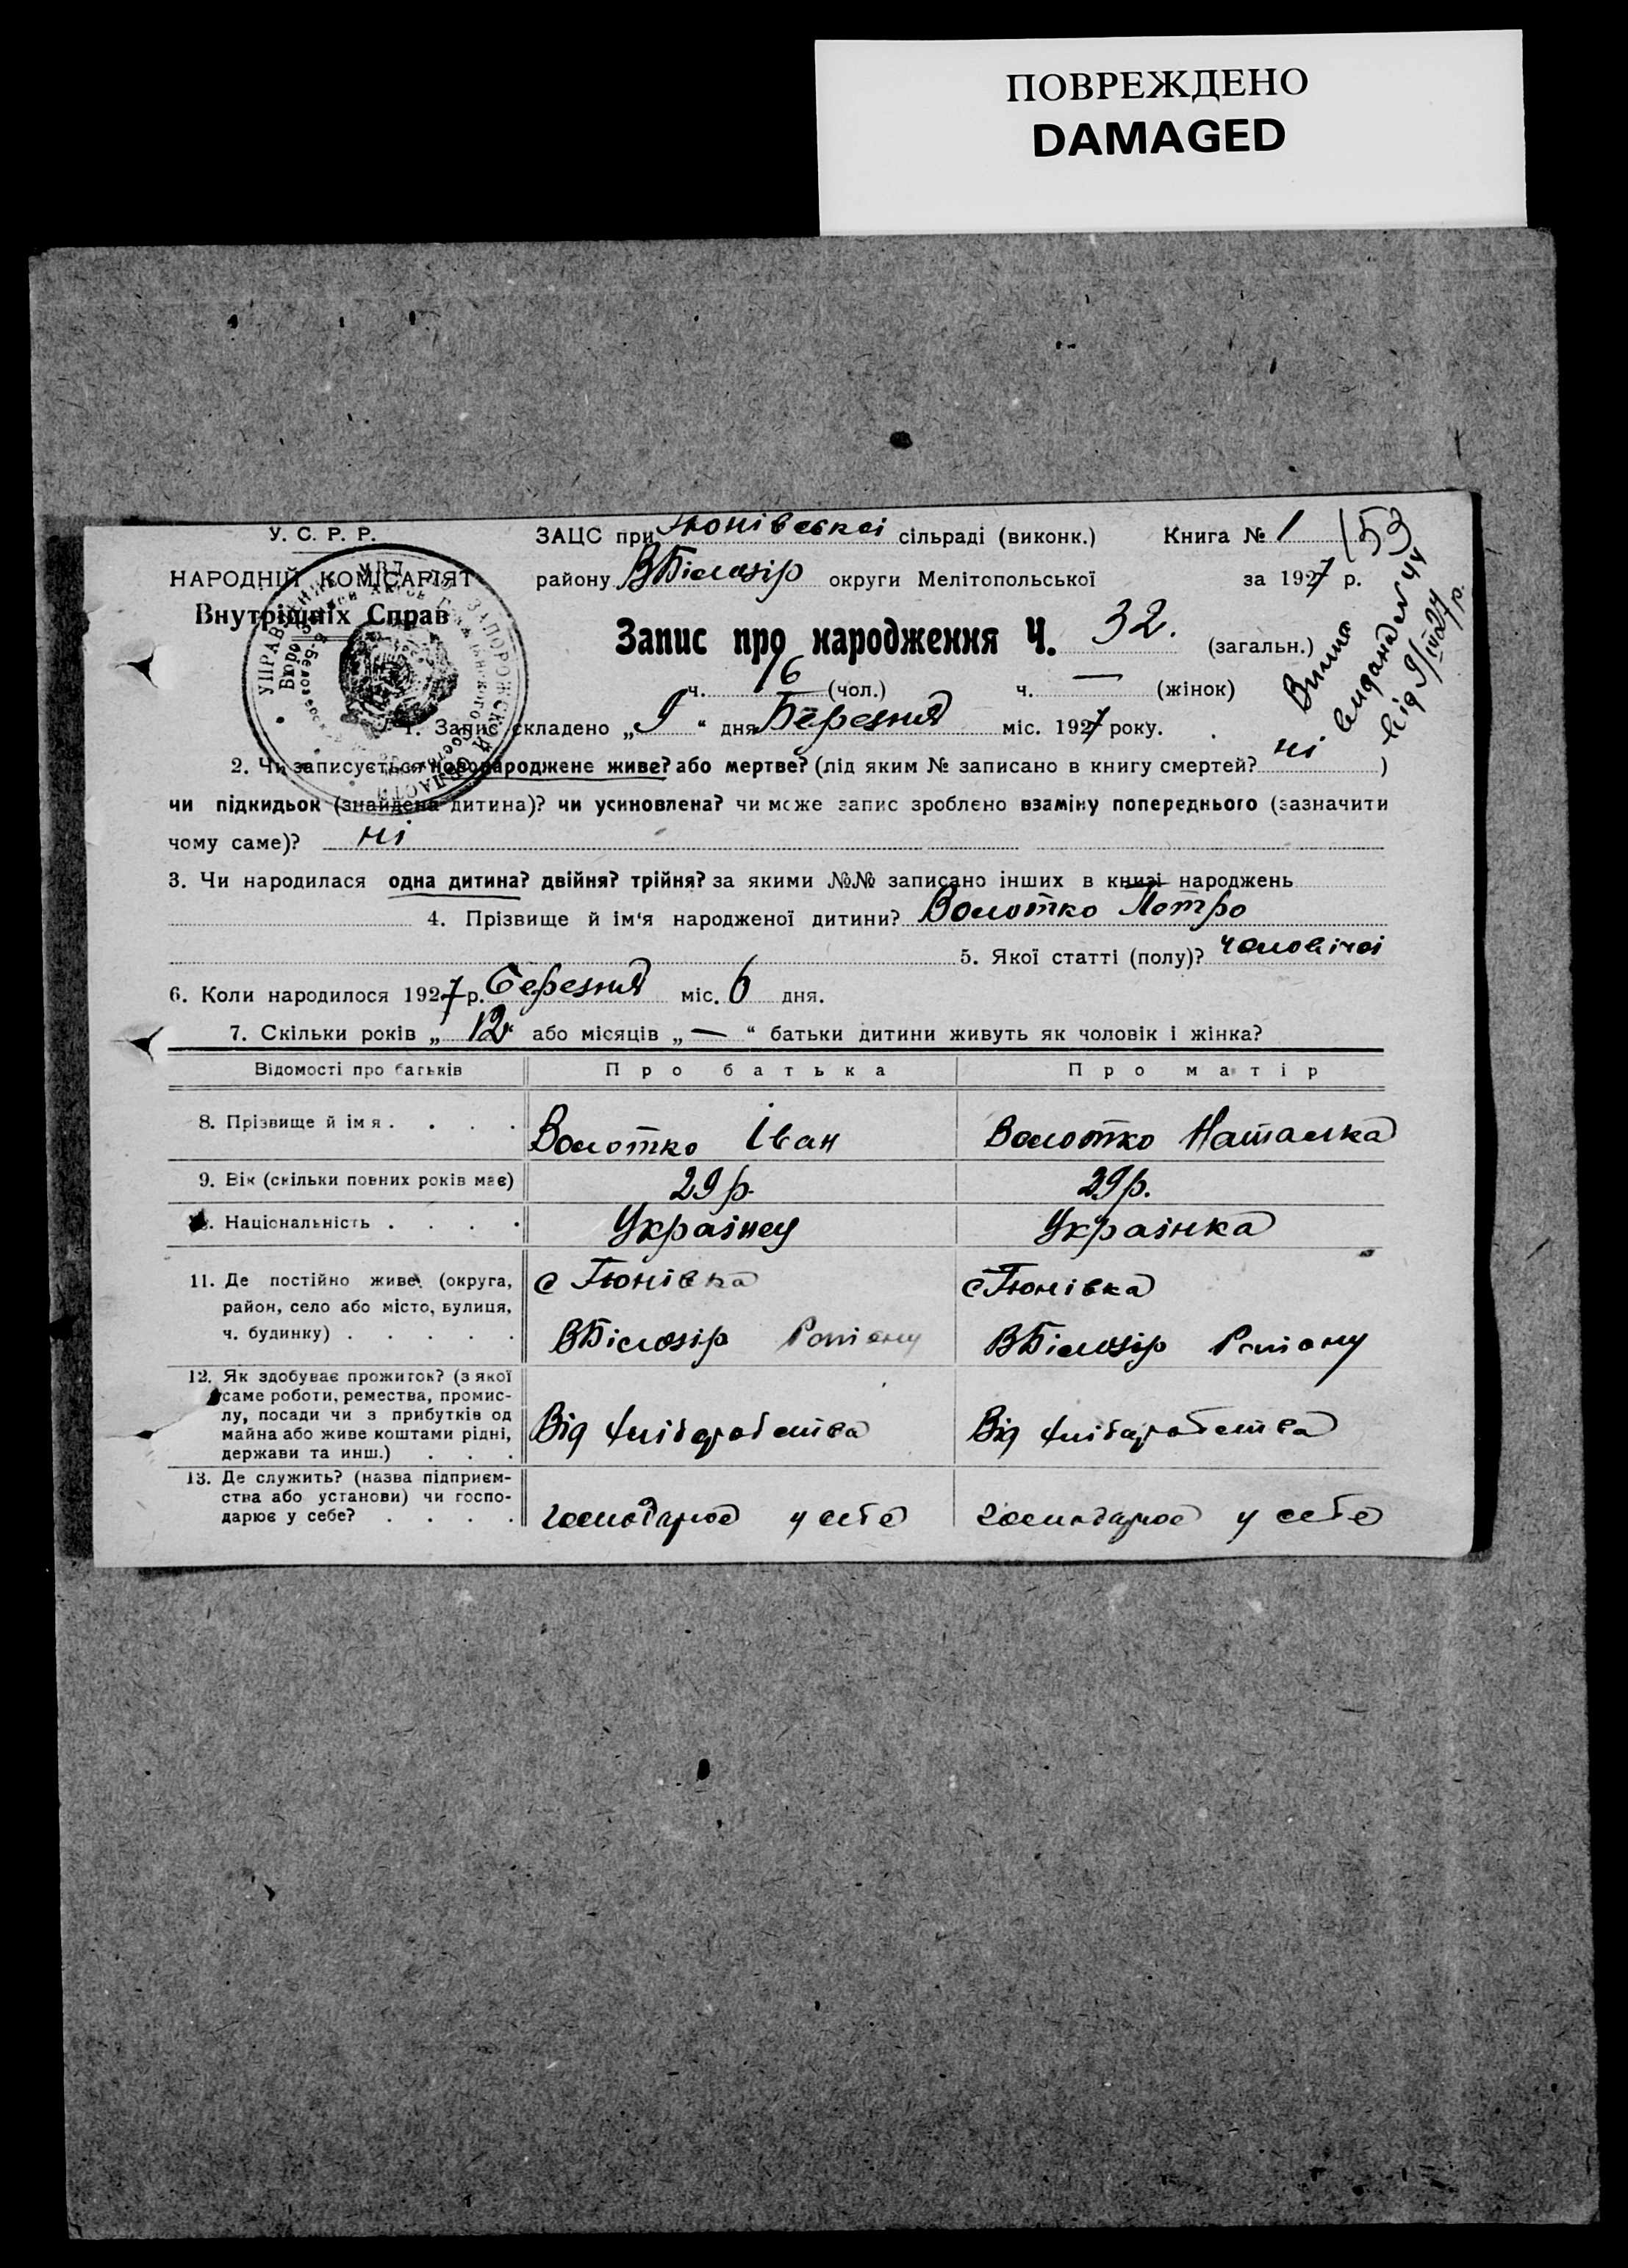 ПОВРЕЖДЕНО
DAMAGED
У. С. Р. Р.
НАРОДНІЙ КОМІСАРІЯТ
Внутрішніх Справ
ЗАЦС при Тюнівській сільраді (виконк.) Книга № 1 153
району ВБілозір округи Мелітопольської за 1927 р.
Запис про народження Ч. 32. (загальн.)
ч. 16 (чол.) ч. — (жінок)
видана
від 9/III 27 р.
1. Запис складено „ 9 “ дня Березня міс. 1927 року.
2. Чи записується новонароджене живе? або мертве? (під яким № записано в книгу смертей? ні )
чи підкидьок (знайдена дитина)? чи усиновлена? чи може запис зроблено взаміну попереднього (зазначити
чому саме)? ні
3. Чи народилася одна дитина? двійня? трійня? за якими №№ записано інших в книзі народжень
4. Прізвище й ім'я народженої дитини? Волотко Петро
5. Якої статті (полу)? чоловічої
6. Коли народилося 1927 р. Березня міс. 6 дня.
7. Скільки років „ 12 “ або місяців „ — “ батьки дитини живуть як чоловік і жінка?
Відомості про батьків Про батька Про матір
8. Прізвище й ім я . . . . Волотко Іван Волотко Наталка
9. Вік (скільки повних років має) 29 р. 29 р.
10. Національність . . . . Українец Українка
11. Де постійно живе (округа, с Тюнівка с Тюнівка
район, село або місто, вулиця,
ч. будинку) . . . . . ВБілозір Району ВБілозір Району
12. Як здобуває прожиток? (з якої
саме роботи, ремества, промис-
лу, посади чи з прибутків од
майна або живе коштами рідні, Від хліборобства Від хліборобства
держави та инш.) . . .
13. Де служить? (назва підприєм-
ства або установи) чи госпо-
дарює у себе? . . . . господарює у себе господарює у себе